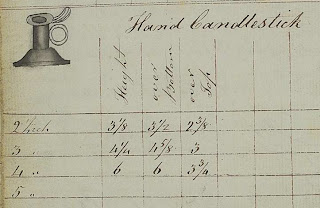 Hand Candlestick
Height over Bottom over Top
2 Inch 3 1/8 3 1/2 2 3/8
3 " 4 1/4 4 5/8 3
4 " 6 6 3 3/4
5 "